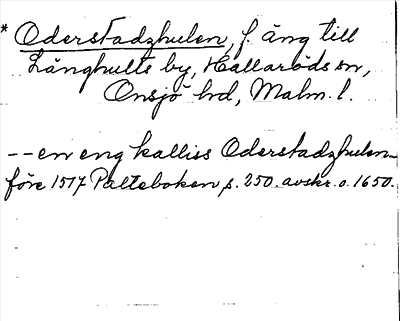 * Oderstadzhulen, f. äng till
Långhults by, Hallaröds sn,
Onsjö hd, Malm. l.
-- en eng kalliss Oderstadzhulen
före 1517 Palteboken s. 250. avskr. o. 1650.